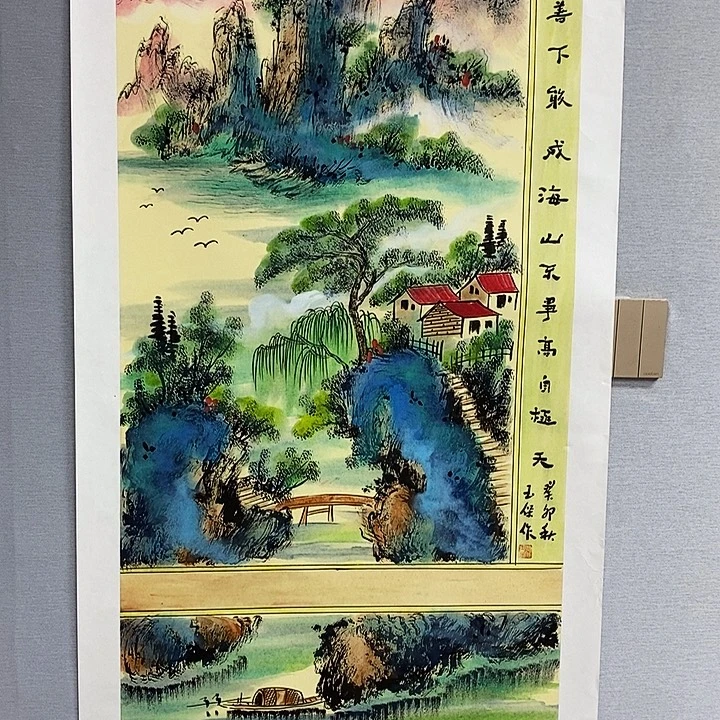 善下能成海山不爭高自極天
癸卯秋
玉傑作